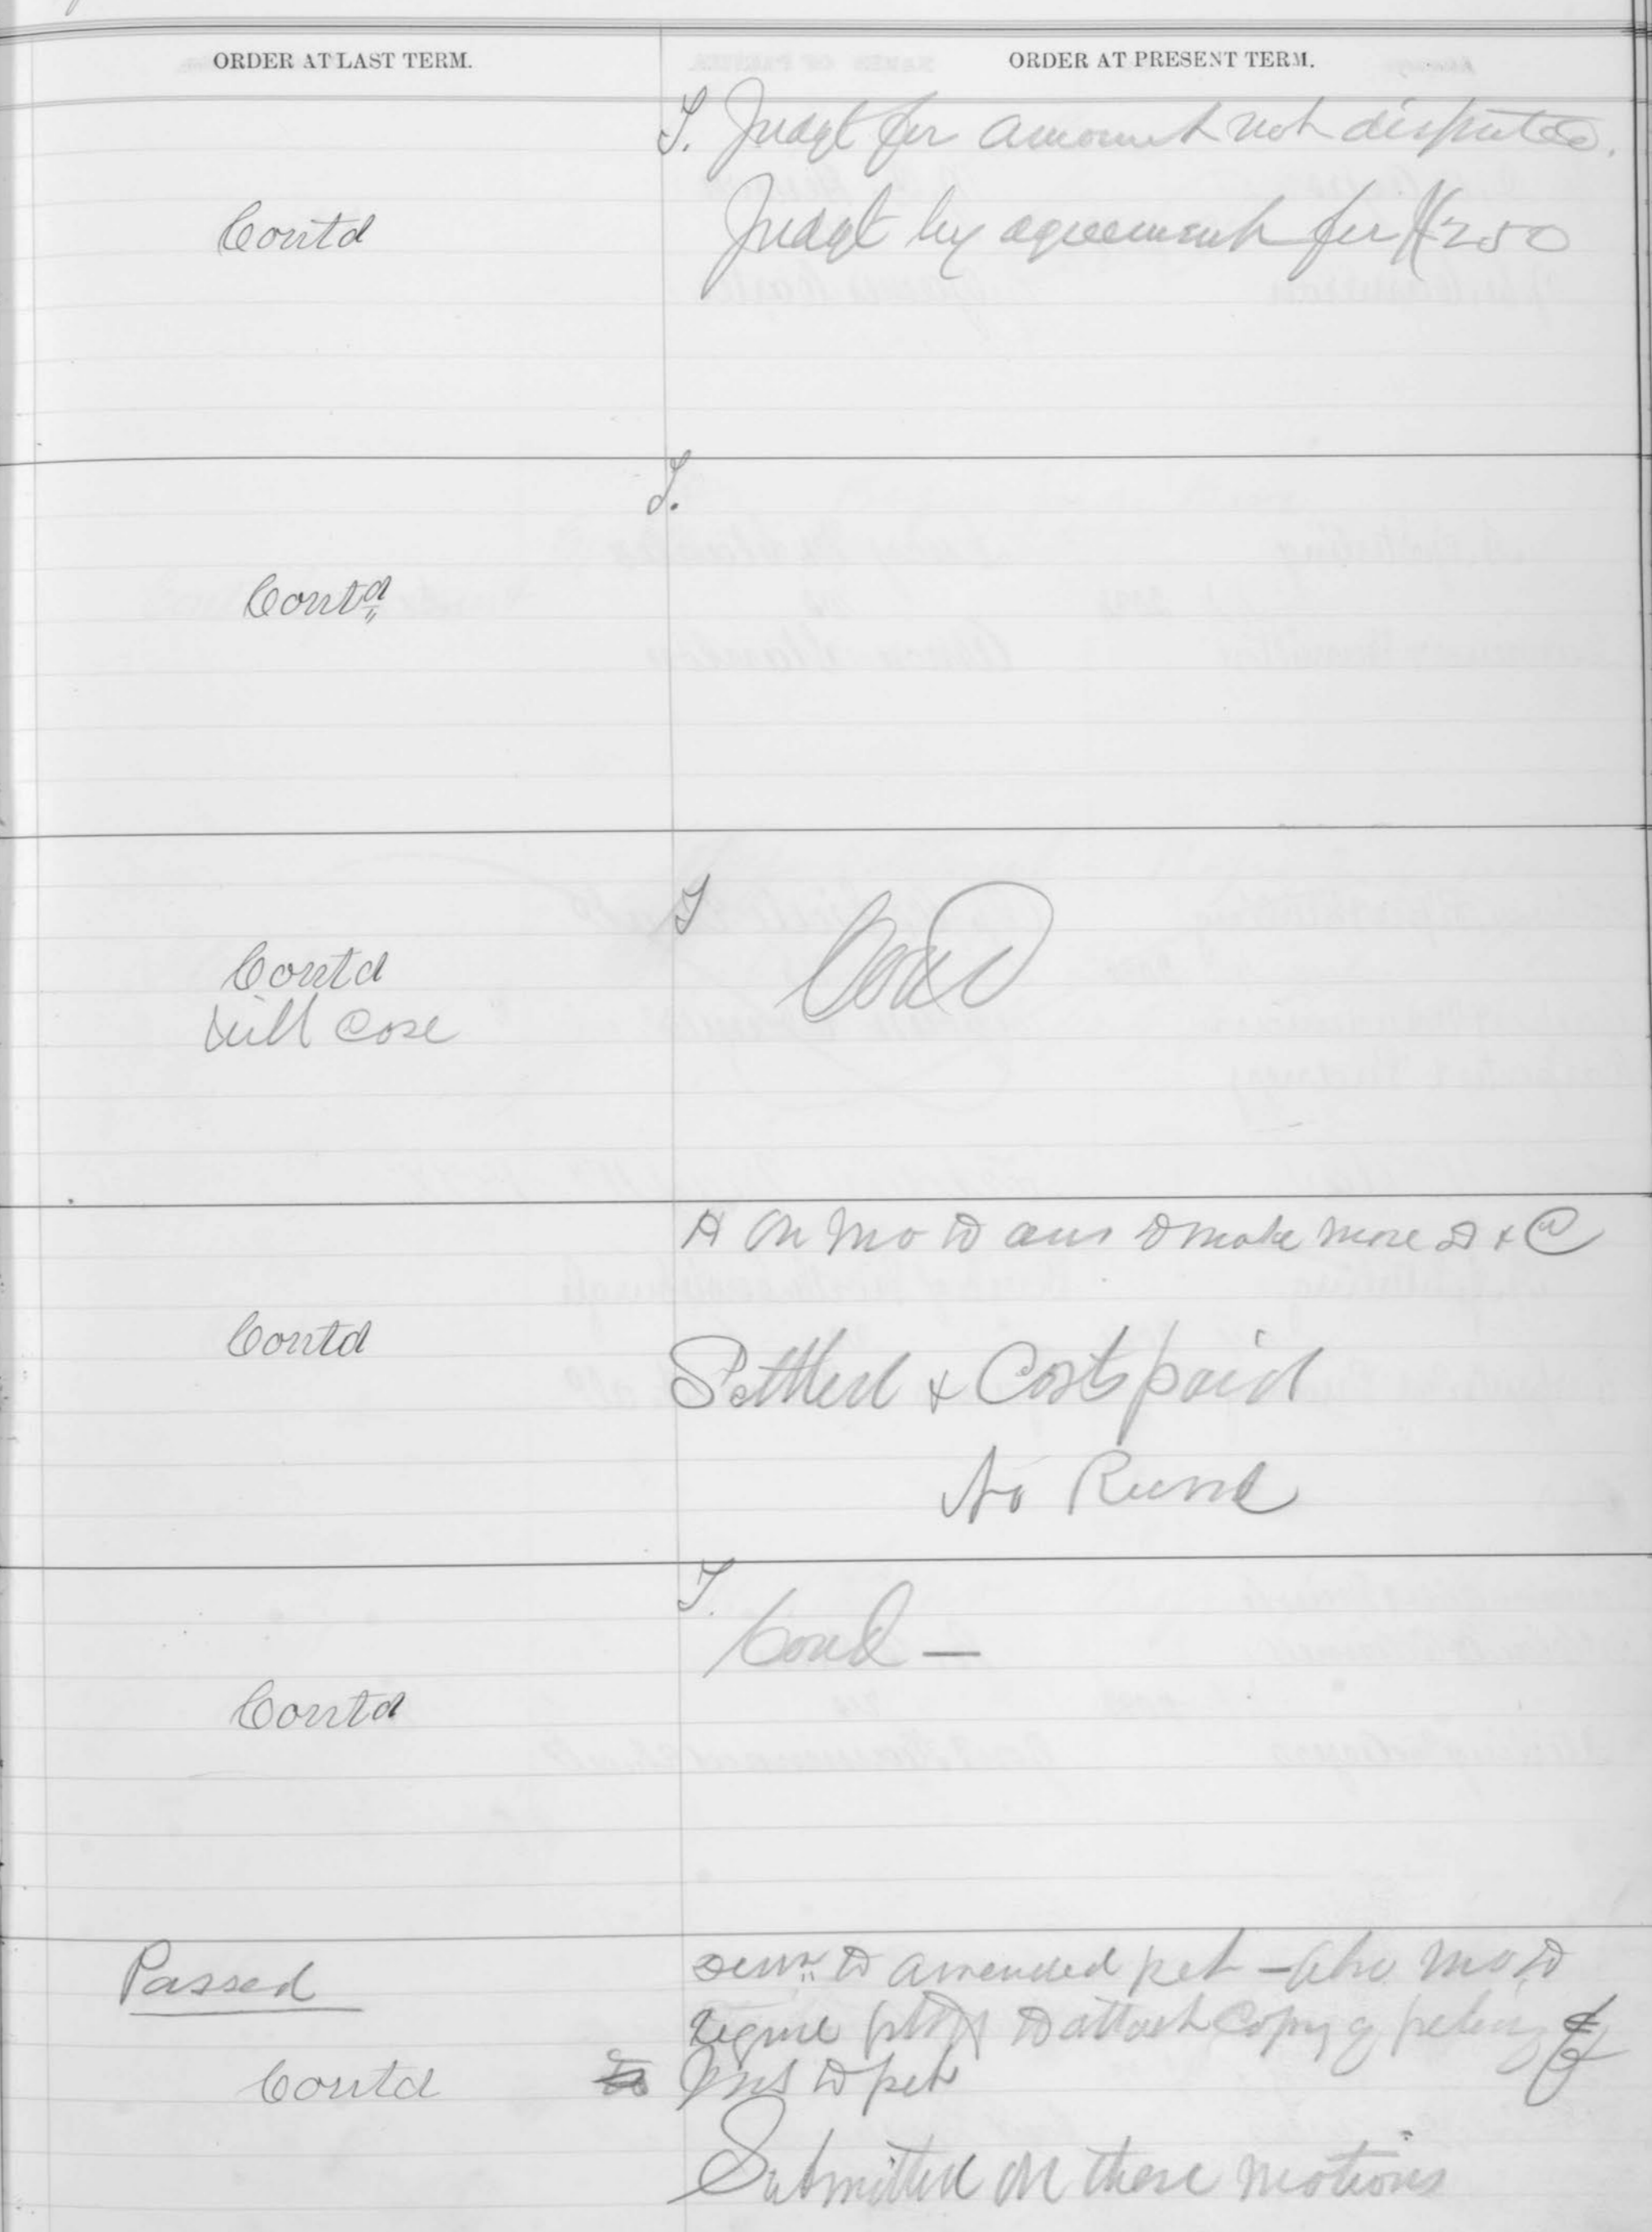 ORDER AT LAST TERM.
ORDER AT PRESENT TERM.
J. Judgt for amount not disputed.
Contd
Judgt by agreement for $250
J.
Contd
J
Contd
Contd
Will Case
On Mo to ans & make more D & C
Contd
Settled & Costs paid
No Record
J.
Contd —
Contd
Passed
Demr. to amended pet — also Mo to
require to attach Copy of
Contd
to pet
Submitted on these motions